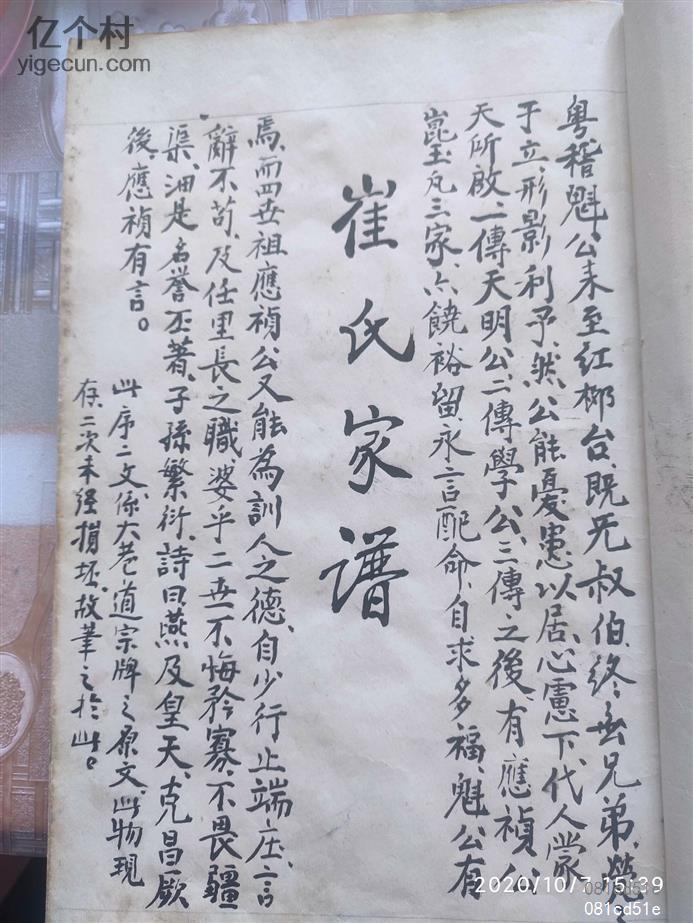 亿个村
yigecun.com
粤稽魁公来至红椰台、既无叔伯、终無兄弟、煢
于立、形影利予、然公能憂患以居、心慮下、代人蒙
天所啟、一傳天明公、二傳學公、三傳之後有應禎公
崑玉凡三家、六饒裕留、永言配命、自求多福、魁公有
崔氏家谱
焉、而四世祖應禎公又能為訓人之德、自少行止端庄、言
辭不苟、及任里長之職、婆乎二世一不悔矜寡、不畏疆
渠、油是名誉丕著、子孫繁衍、詩曰、燕及皇天、克昌厥
後、應禎有言。
此序二文、係大巷道宗牌之原文、此物現
存、二次未經損坏、故筆之於此。
2020/10/7 15:39
081cd51e